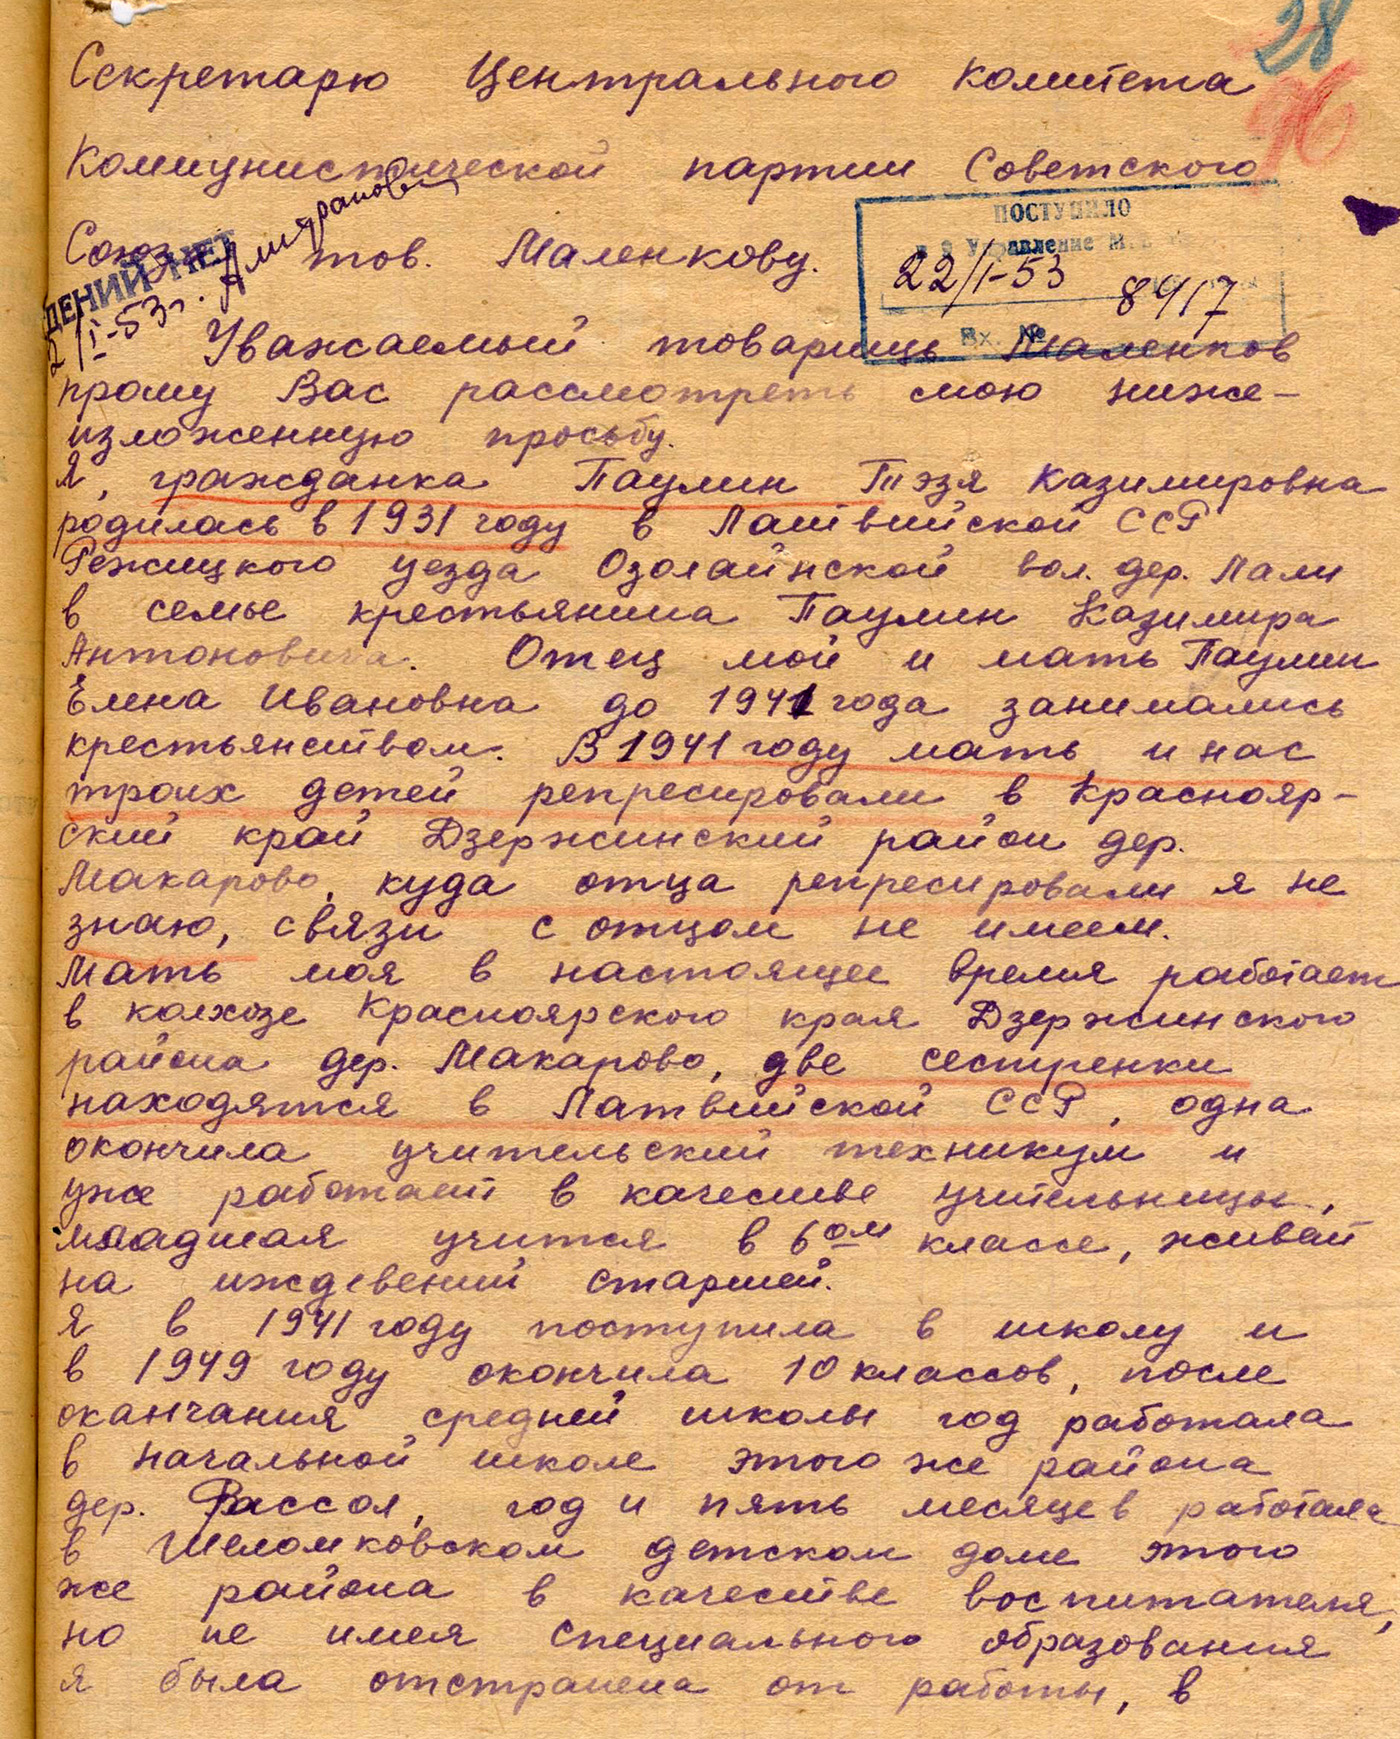 28
96
Секретарю Центрального Комитета
Коммунистической партии Советского
Союза тов. Маленкову.
ПОСТУПИЛО
Управление
22/I-53 8917
Вх. №
ДЕНИЙ НЕТ
2/I-53г.
Уважаемый товарищь Маленков
прошу Вас рассмотреть мою ниже-
изложенную просьбу.
Я, гражданка Паулин Тэзя Казимировна
родилась в 1931 году в Латвийской ССР
Режицкого уезда Озолайнской вол. дер. Пали
в семье крестьянина Паулин Казимира
Антоновича. Отец мой и мать Паулин
Елена Ивановна до 1941 года занимались
крестьянством. В 1941 году мать и нас
троих детей репресировали в Краснояр-
ский край Дзержинский район дер.
Макарово, куда отца репресировали я не
знаю, связи с отцом не имеем.
Мать моя в настоящее время работает
в колхозе Красноярского края Дзержинского
района дер. Макарово, две сестренки
находятся в Латвийской ССР, одна
окончила учительский техникум и
уже работает в качестве учительницы,
младшая учится в 6ом классе, живет
на иждевений старшей.
Я в 1941 году поступила в школу и
в 1949 году окончила 10 классов, после
оканчания средней школы год работала
в начальной школе этого же района
дер. Рассол, год и пять месяцев работала
в Шеломковском детском доме этого
же района в качестве воспитателя,
но не имея специального образования
я была отстранена от работы, в